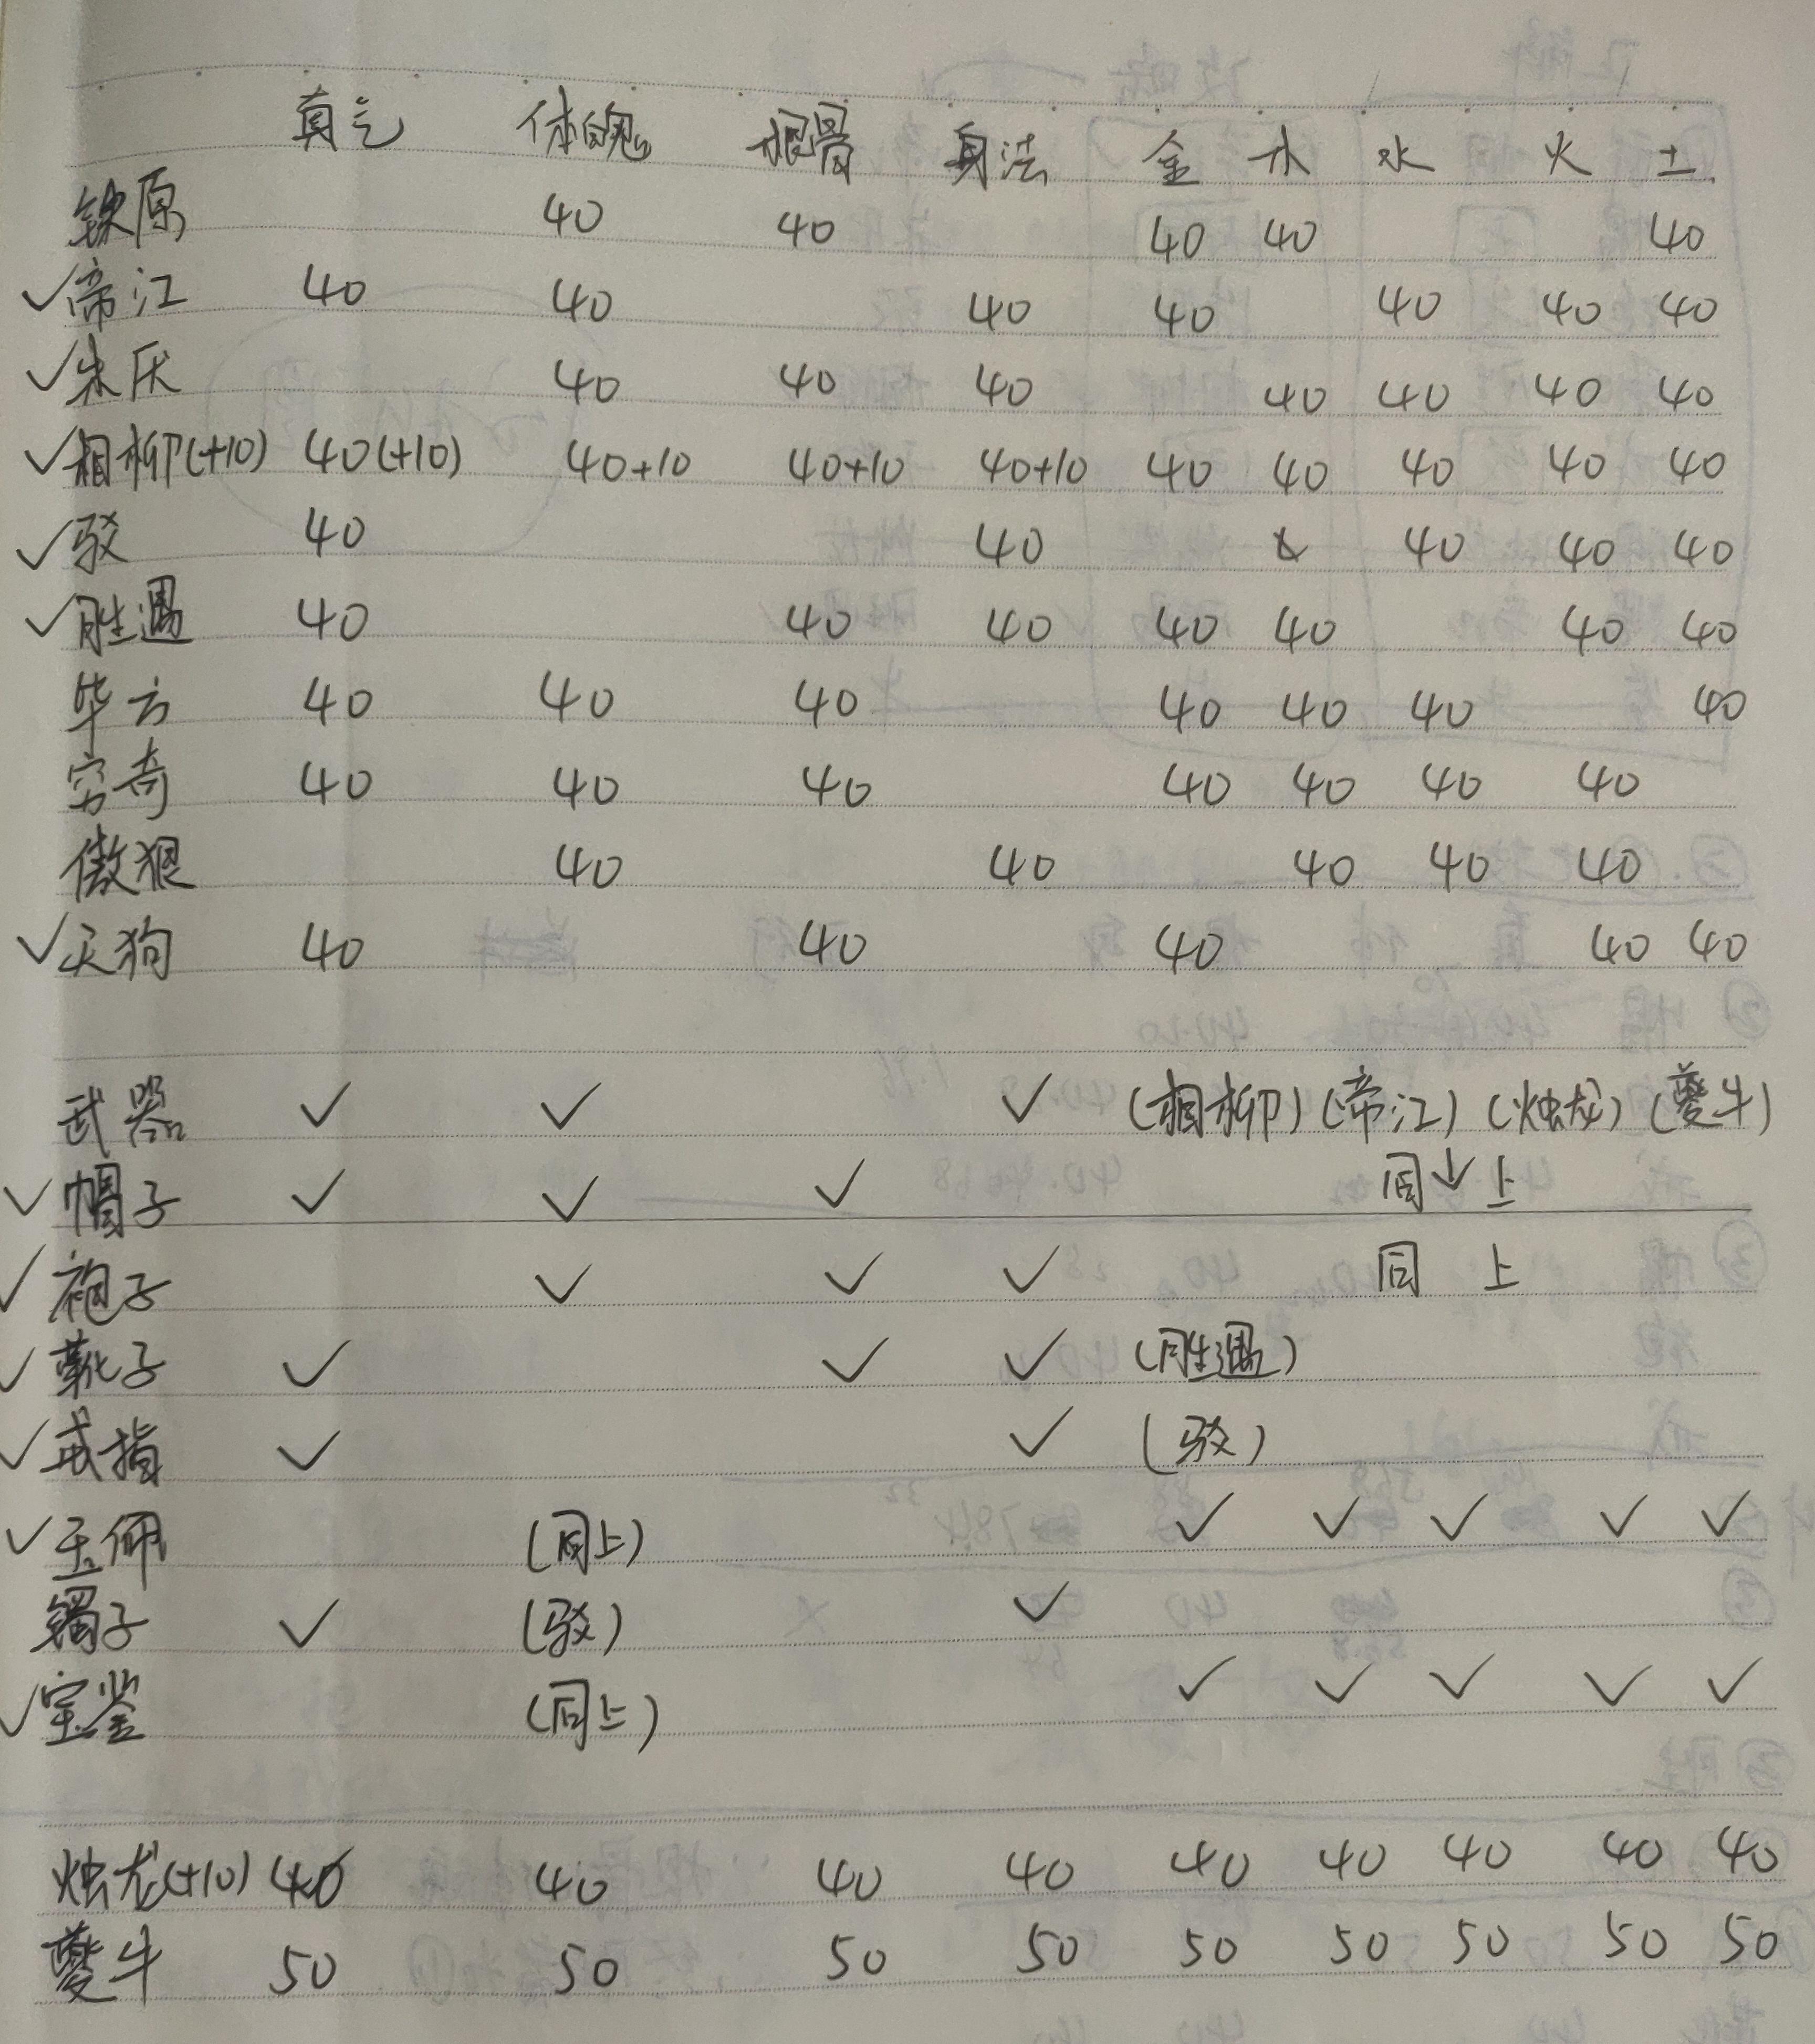 真气 体魄 根骨 身法 金 木 水 火 土
铁原 40 40 40 40 40
✓帝江 40 40 40 40 40 40 40
✓朱厌 40 40 40 40 40 40 40
✓相柳(+10) 40(+10) 40+10 40+10 40+10 40 40 40 40 40
✓驳 40 40 40 40 40
✓胜遇 40 40 40 40 40 40 40
毕方 40 40 40 40 40 40 40
穷奇 40 40 40 40 40 40 40
傲狠 40 40 40 40 40
✓天狗 40 40 40 40 40
武器 ✓ ✓ ✓ (相柳) (帝江) (烛龙) (夔牛)
✓帽子 ✓ ✓ ✓ 同↓上
✓袍子 ✓ ✓ ✓ 同 上
✓靴子 ✓ ✓ ✓ (胜遇)
✓戒指 ✓ ✓ (驳)
✓玉佩 (同上) ✓ ✓ ✓ ✓ ✓
镯子 ✓ (驳) ✓
✓宝鉴 (同上) ✓ ✓ ✓ ✓ ✓
烛龙(+10) 40 40 40 40 40 40 40 40 40
夔牛 50 50 50 50 50 50 50 50 50